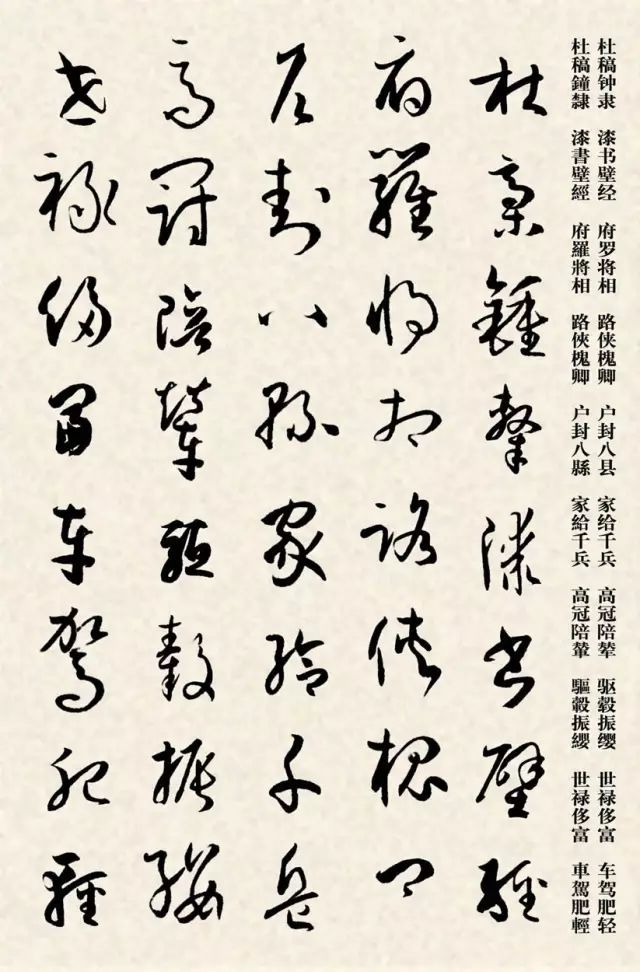 杜稿钟隶 漆书壁经 府罗将相 路侠槐卿 户封八县 家给千兵 高冠陪辇 驱毂振缨 世禄侈富 车驾肥轻
杜稿鐘隸 漆書壁經 府羅將相 路俠槐卿 户封八縣 家給千兵 高冠陪輦 驅轂振纓 世禄侈富 車駕肥輕
杜稿鍾隸漆書壁經
府羅將相路俠槐卿
户封八縣家給千兵
高冠陪輦驅轂振纓
世禄侈富車駕肥輕